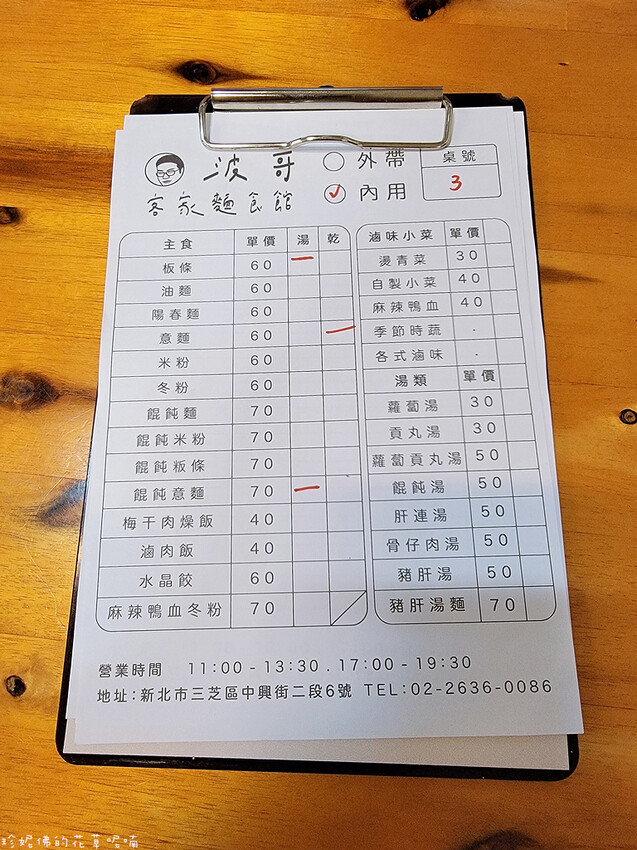 波哥
客家麵食館
外帶
內用
桌號
3
主食 單價 湯 乾
板條 60
油麵 60
陽春麵 60
意麵 60
米粉 60
冬粉 60
餛飩麵 70
餛飩米粉 70
餛飩粄條 70
餛飩意麵 70
梅干肉燥飯 40
滷肉飯 40
水晶餃 60
麻辣鴨血冬粉 70
滷味小菜 單價
燙青菜 30
自製小菜 40
麻辣鴨血 40
季節時蔬 .
各式滷味 .
湯類 單價
蘿蔔湯 30
貢丸湯 30
蘿蔔貢丸湯 50
餛飩湯 50
肝連湯 50
骨仔肉湯 50
豬肝湯 50
豬肝湯麵 70
營業時間 11:00-13:30.17:00-19:30
地址:新北市三芝區中興街二段6號 TEL:02-2636-0086
珍妮佛的花草呢喃